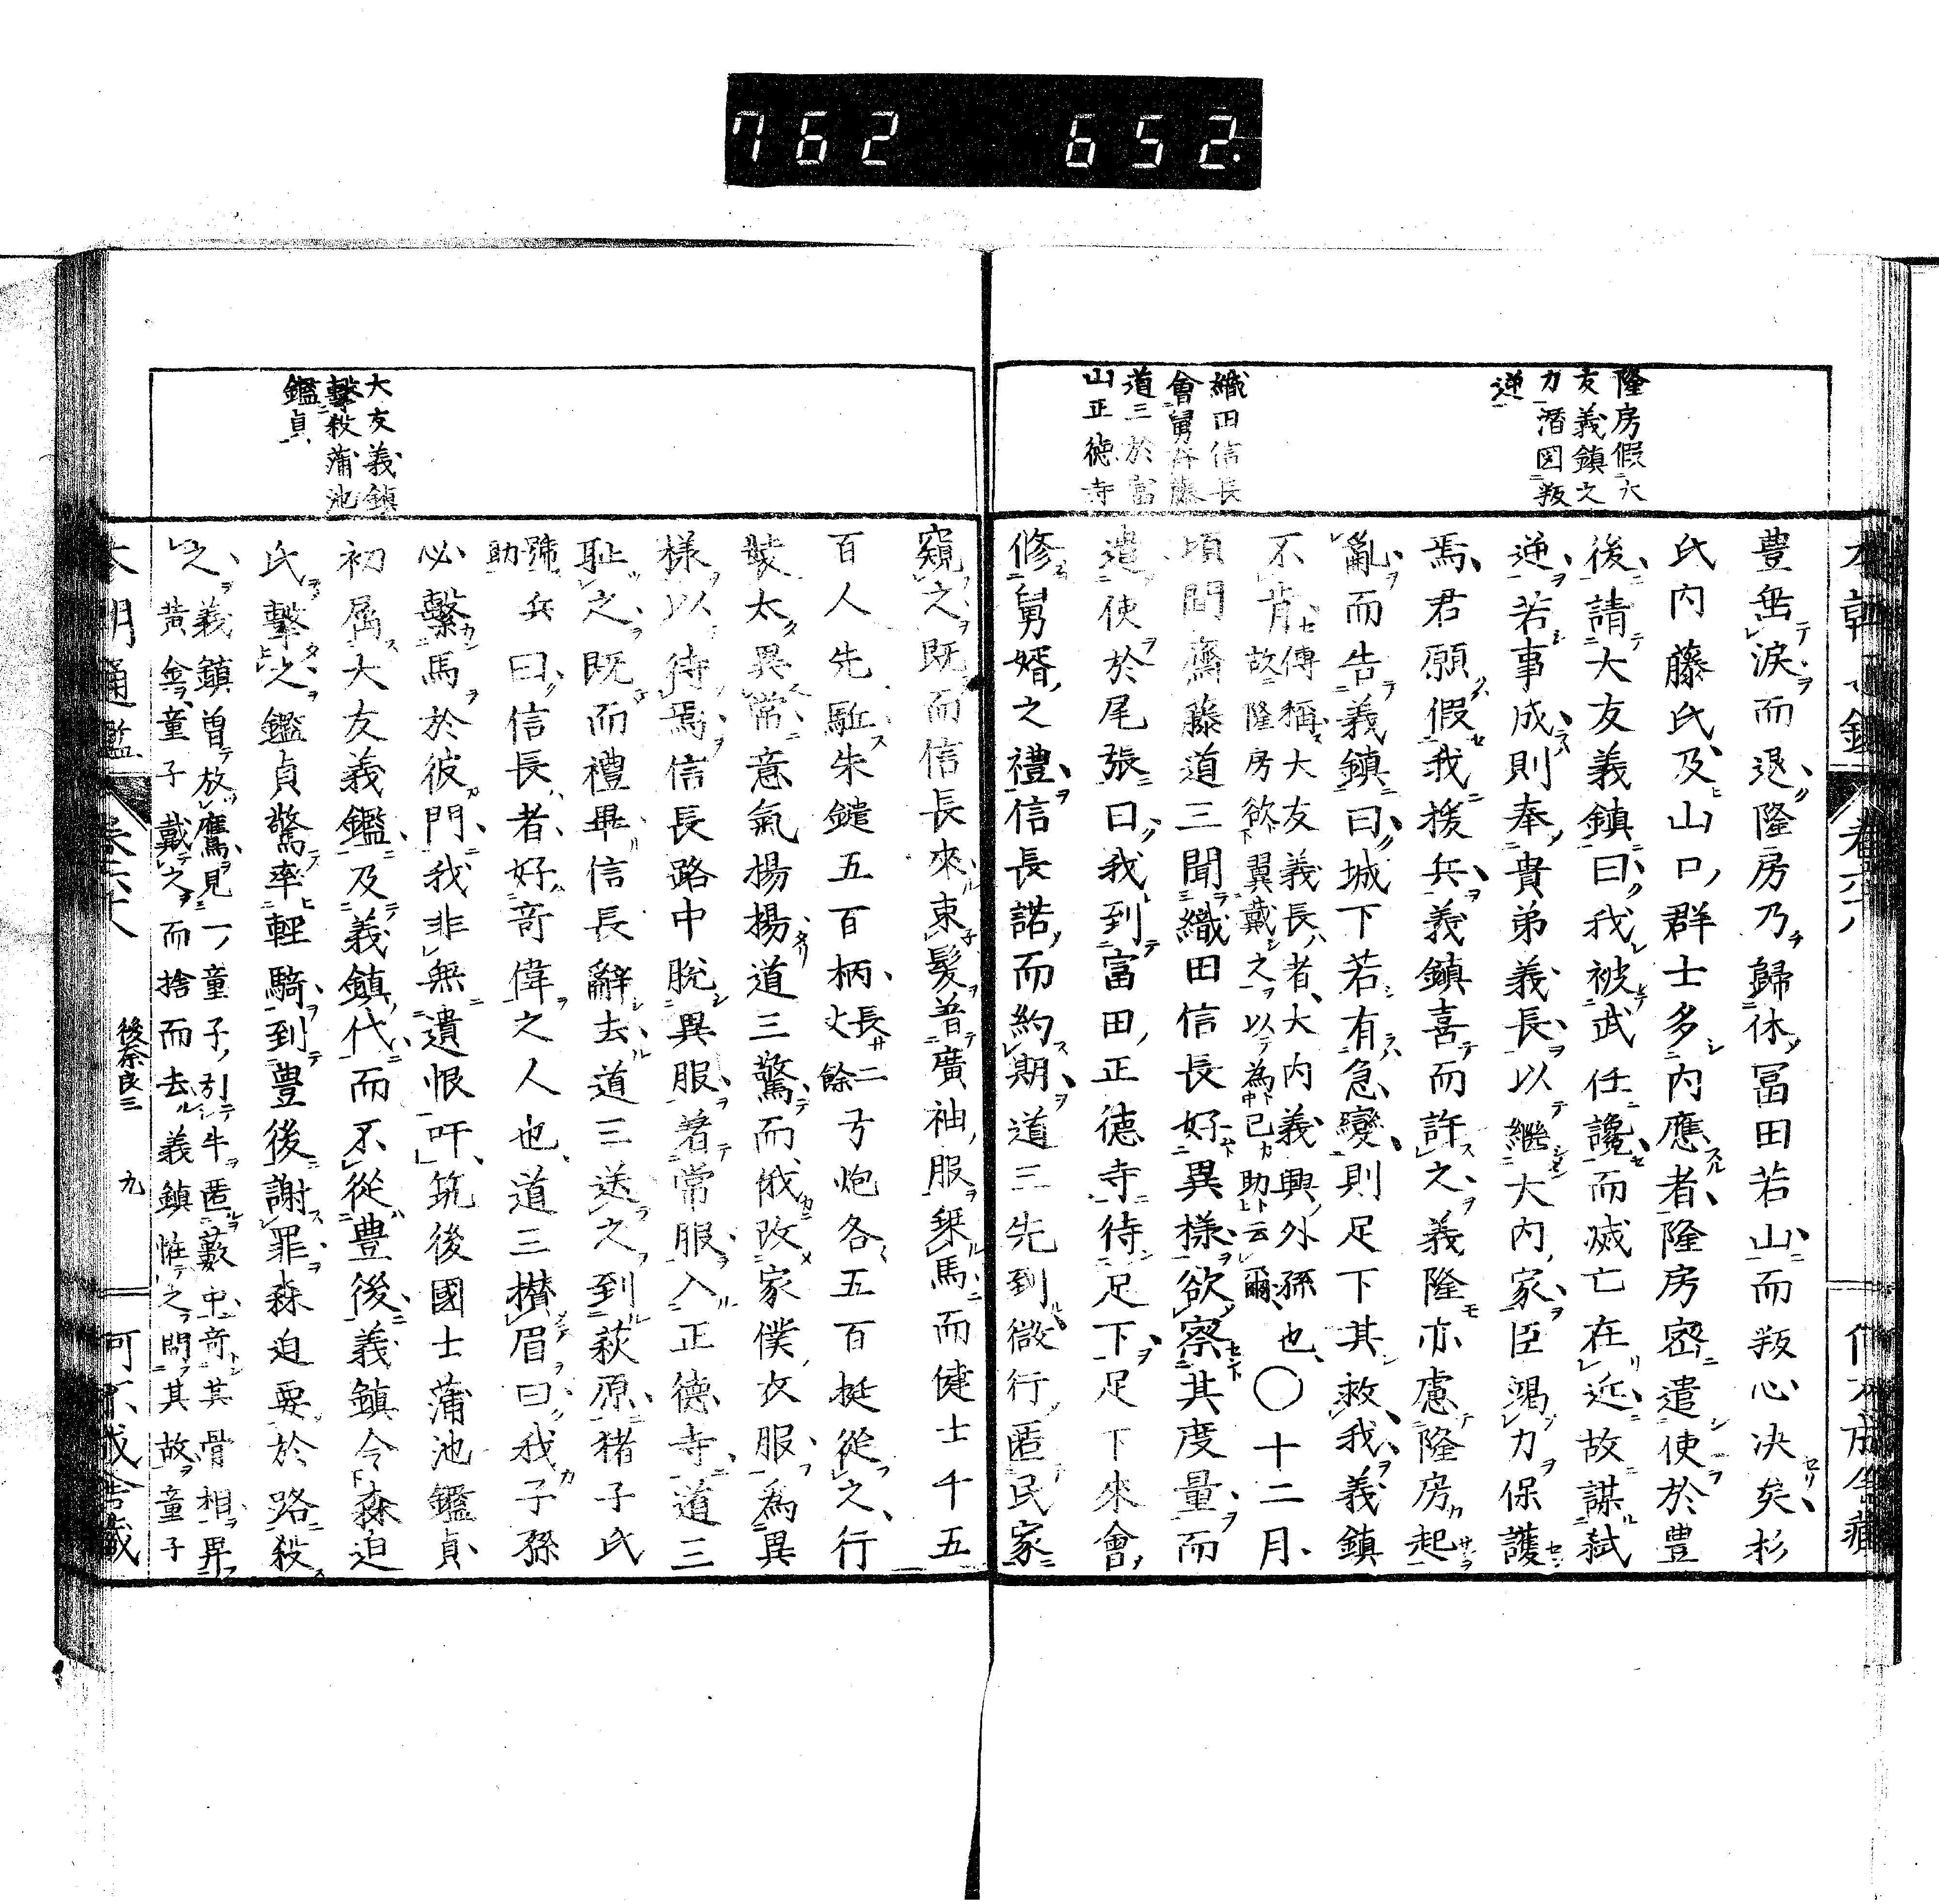 762 652.
隆房假大
友義鎮之
力潛図叛
逆
織田信長
會舅斎藤
道三於富
山正徳寺
豊垂涙而退隆房乃歸休冨田若山而叛心决矣杉
氏内藤氏及山口群士多内應者隆房密遣使於豊
後請大友義鎮曰我被武任讒而滅亡在近故謀弑
逆若事成則奉貴弟義長以繼大内家臣竭力保護
焉君願假我援兵義鎮喜而許之義隆亦慮隆房起
亂而告義鎮曰城下若有急變則足下其救我義鎮
不肯傳稱大友義長者大内義興外孫也
故隆房欲翼戴之以為己助云爾〇十二月
頃間齋藤道三聞織田信長好異樣欲察其度量而
遣使於尾張曰我到富田正徳寺待足下足下來會
修舅婿之禮信長諾而約期道三先到微行匿民家
大友義鎮
擊殺蒲池
鑑貞
窺之既而信長來束髮著廣袖服乗馬而健士千五
百人先駈朱鑓五百柄長二
丈餘弓炮各五百挺從之行
裝太異常意氣揚揚道三驚而俄改家僕衣服為異
樣以待焉信長路中脱異服著常服入正徳寺道三
耻之既而禮畢信長辭去道三送之到萩原猪子氏
號兵
助曰信長者好竒偉之人也道三攅眉曰我子孫
必繫馬於彼門我非無遺恨吁筑後國士蒲池鑑貞
初屬大友義鑑及義鎮代而不從豊後義鎮令森迫
氏擊之鑑貞驚率輕騎到豊後謝罪森迫要於路殺
之義鎮曽放鷹見一童子引牛匿藪中竒其骨相畀
黄金童子戴之而捨而去義鎮恠之問其故童子
後奈良三 九